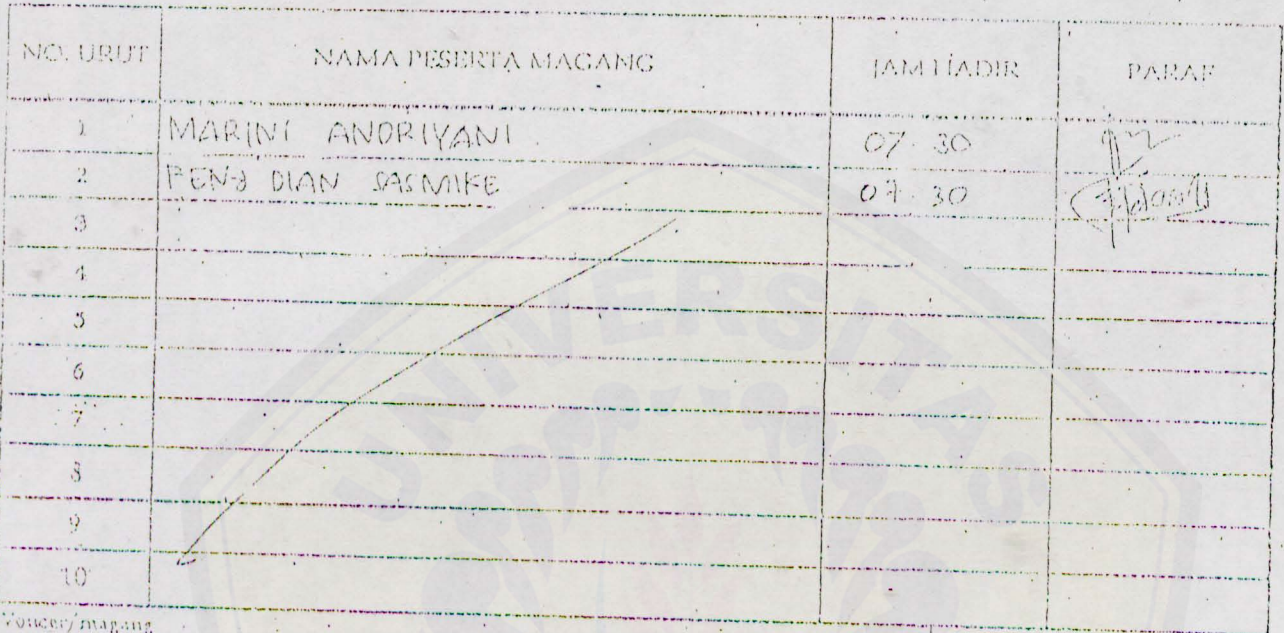 NO. URUT NAMA PESERTA MAGANG JAM HADIR PARAF
1 MARINI ANDRIYANI 07.30
2 DIAN SASMIKE 07.30
3
4
5
6
7
8
9
10
Voucer/magang
UNIVERSITAS